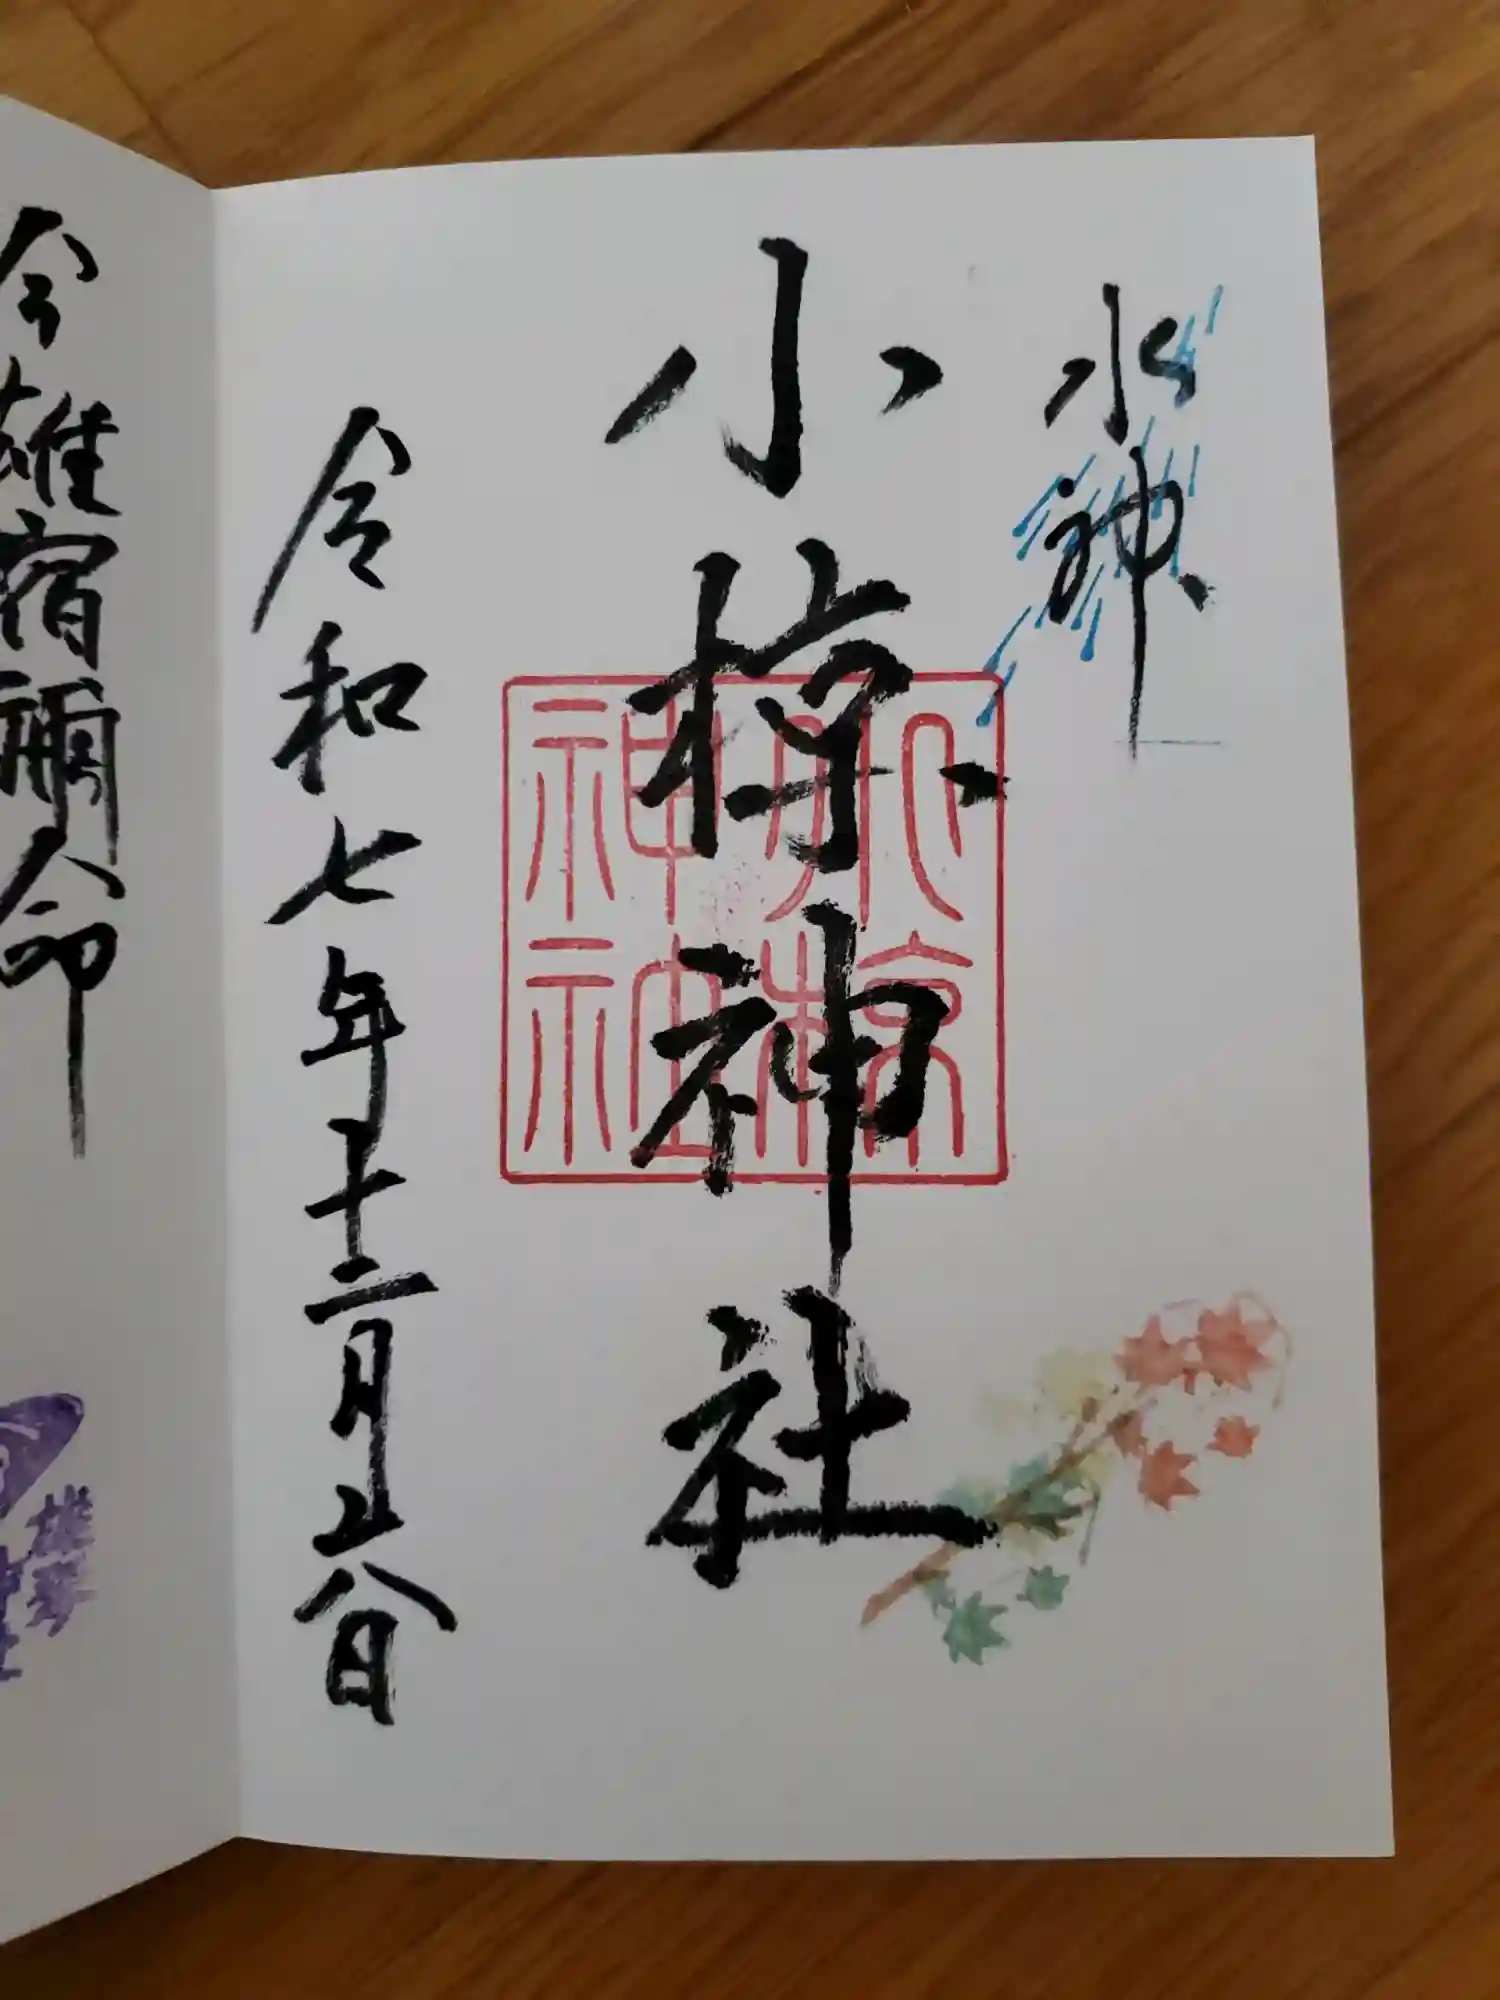 水神
小椋神社
小椋
神社
令和七年十二月
八日
今雄宿禰命
雄琴